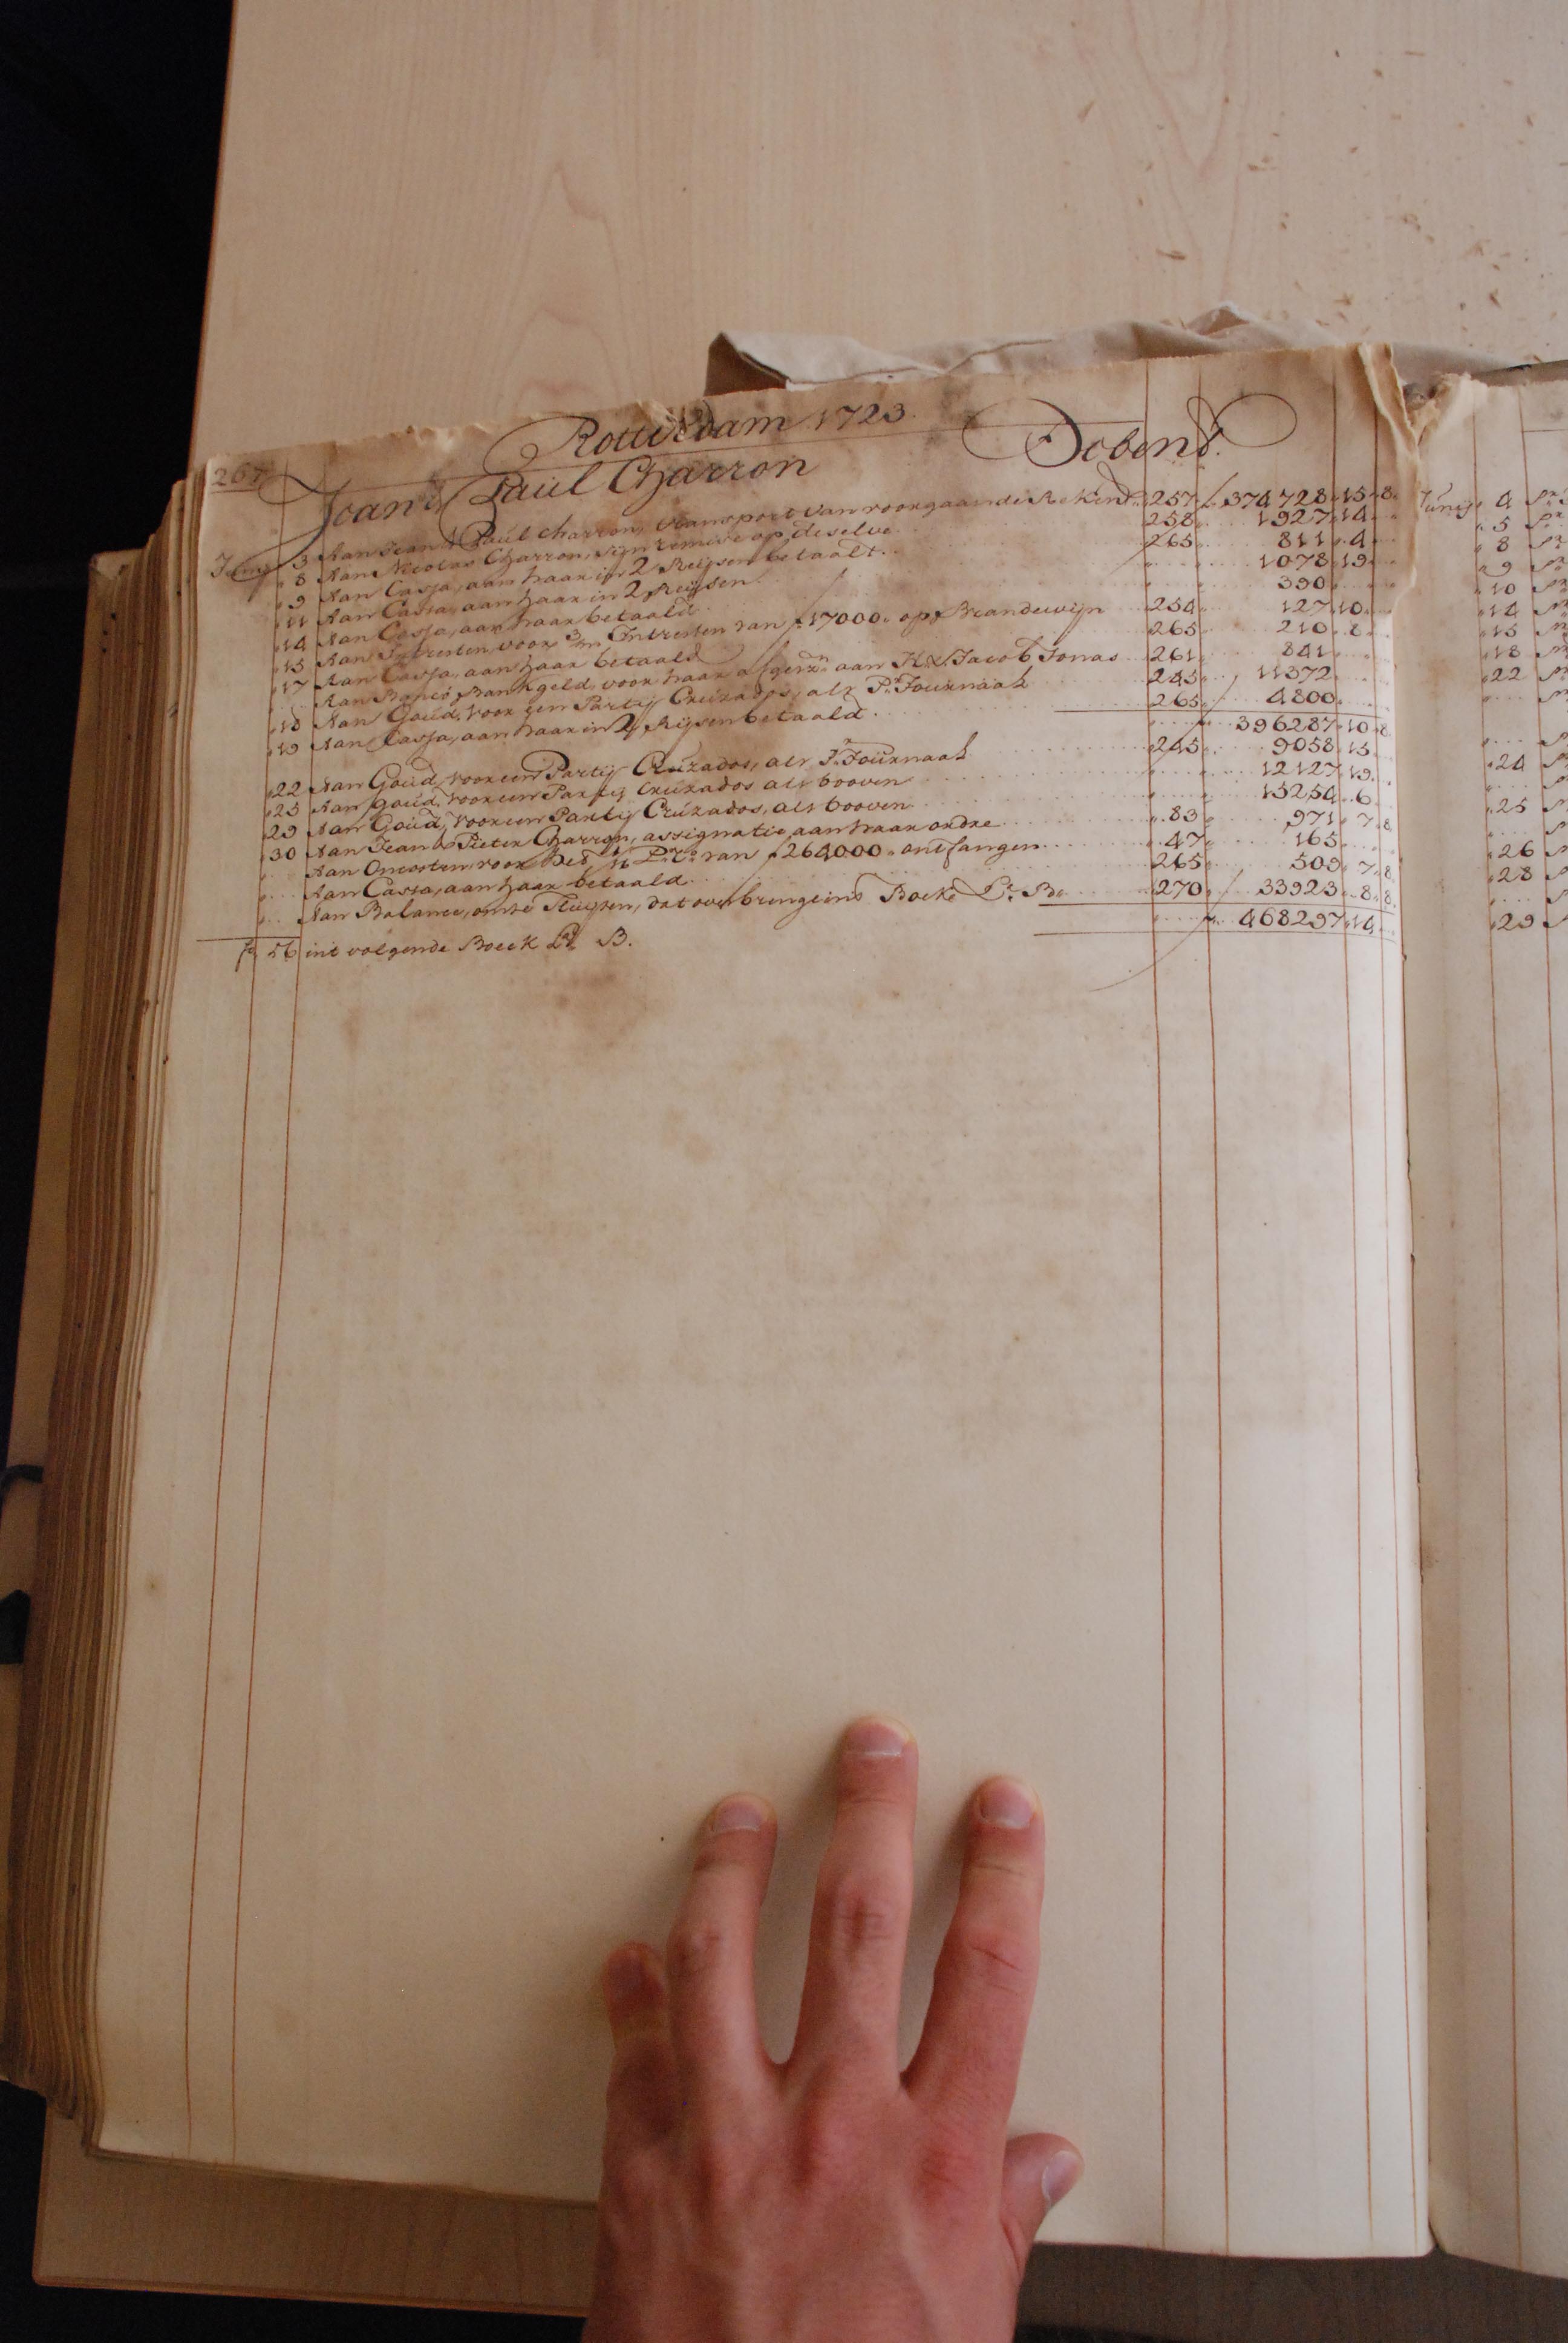 267
Rotterdam 1723.
Jean & Paul Charron Debent.
Juny 3 Aan Jean & Paul Charron, transport van voorgaande Rekeng 257 f 374728 15 8
8 Aan Nicolas Charron, sijn remise op deselve 258 1927 14
9 Aan Cassa, aan haar in 2 Reijsen betaalt 265 811 4
11 Aan Cassa, aan haar in 2 Reijsen 1078 19
14 Aan Cassa, aan haar betaald 390
15 Aan Intresten, voor 3/m Intresten van f 17000 op Brandewijn 254 127 10
17 Aan Cassa, aan haar betaald 265 210 8
Aan Banco, Bankgeld, voor haar afgeschr. aan H. & Jacob Jonas 261 841
18 Aan Goud, voor een Partij Cruzados, als Pr. Journaal 245 11372
19 Aan Cassa, aan haar in 2 Rijsen betaald 265 4800
396287 10 8
22 Aan Goud, voor een Partij Cruzados, als Pr. Journaal 245 9058 15
25 Aan goud, voor een Partij Cruzados als booven 12127 19
29 Aan Goud, voor een Partij Cruzados, als booven 15254 6
30 Aan Jean & Pieter Charron, assignatie aan haar ordre 83 971 7 8
Aan Oncosten voor van f 264000 ontfangen 47 165
Aan Cassa, aan haar betaald 265 509 7 8
Aan Balance, omte Sluijten, dat overbreng eins Boek Lr. B. 270 33923 8 8
468297 14
fo 56 int volgende Boeck Lr B.
Juny 4
5
8
9
10
14
15
18
22
24
25
26
28
29